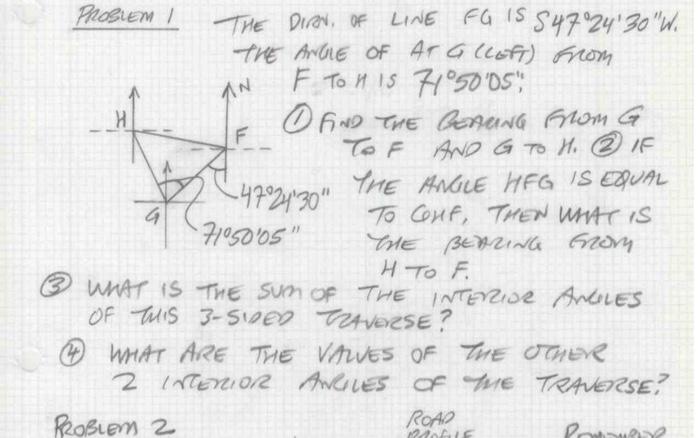 PROBLEM 1
THE DIRN. OF LINE FG IS S47°24'30"W.
THE ANGLE OF AT G (LEFT) FROM
F TO H IS 71°50'05".
① FIND THE BEARING FROM G
TO F AND G TO H. ② IF
THE ANGLE HFG IS EQUAL
TO GHF, THEN WHAT IS
THE BEARING FROM
H TO F.
N
H
F
G
47°24'30"
71°50'05"
③ WHAT IS THE SUM OF THE INTERIOR ANGLES
OF THIS 3-SIDED TRAVERSE?
④ WHAT ARE THE VALUES OF THE OTHER
2 INTERIOR ANGLES OF THE TRAVERSE?
PROBLEM 2
ROAD
PROFILE